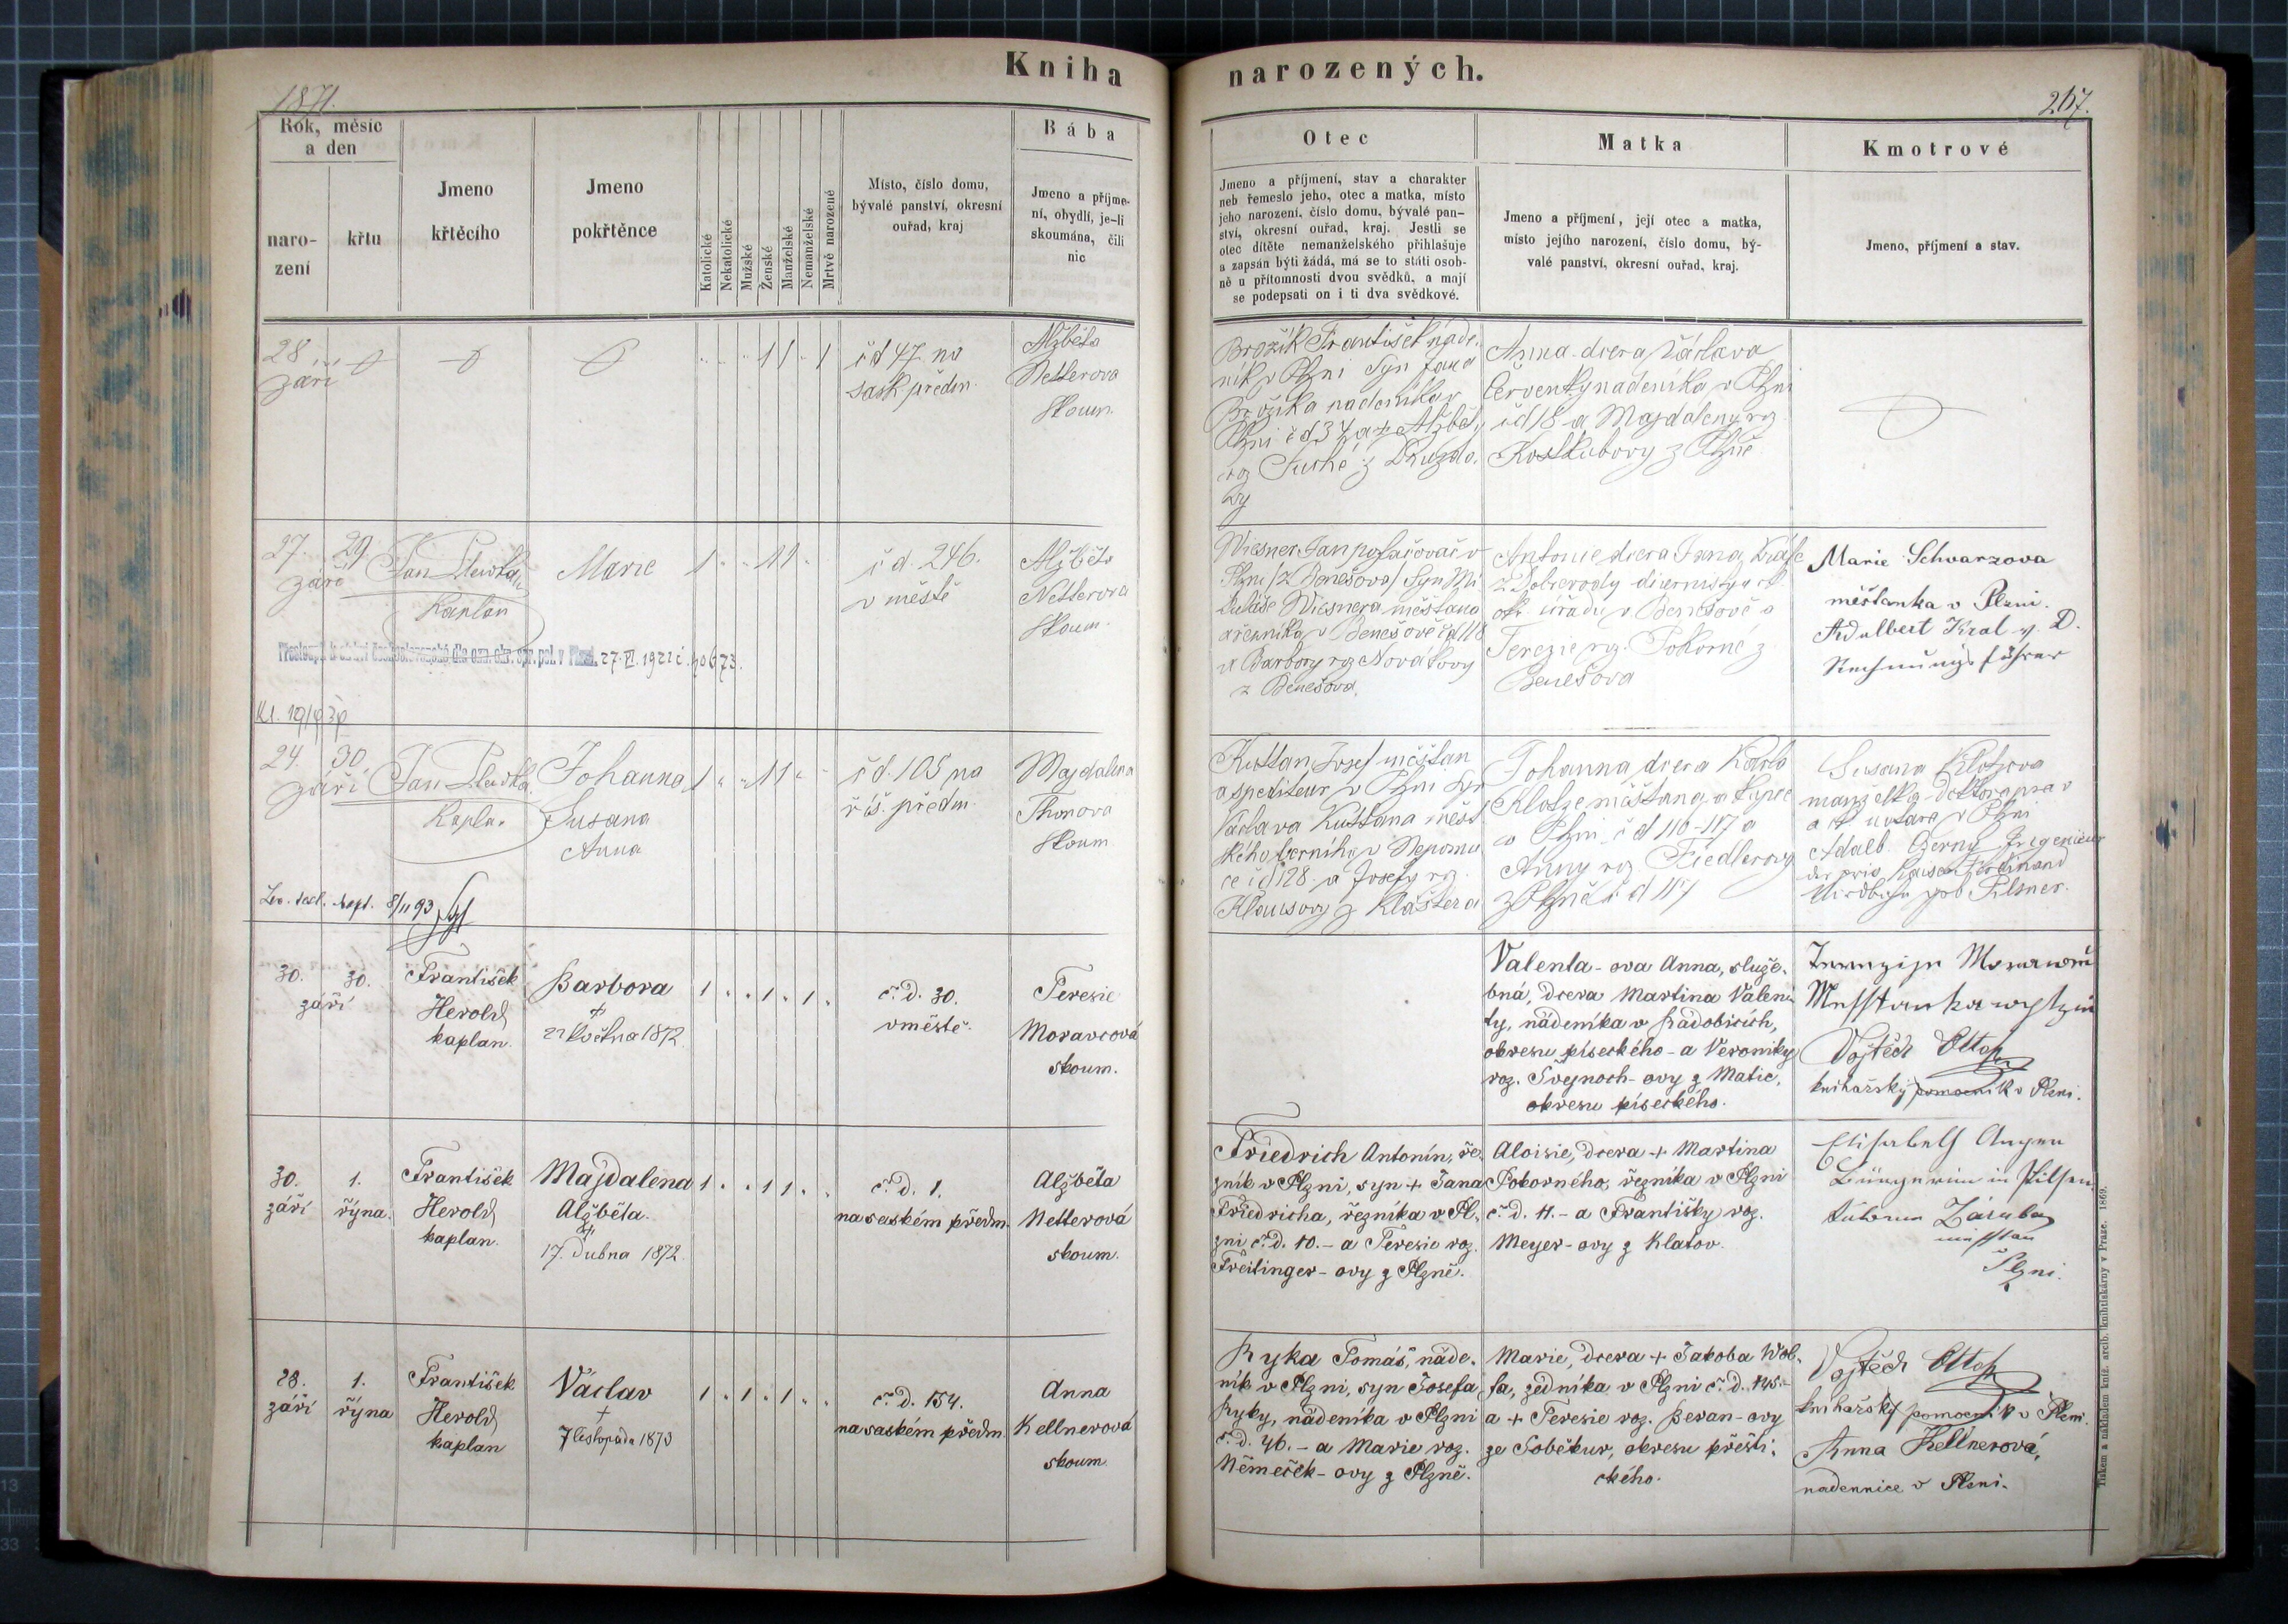 Kniha
narozených.
1871.
267.
Rok, měsíc
a den
naro-
zení
křtu
Jmeno
křtěcího
Jmeno
pokřtěnce
Katolické
Nekatolické
Mužské
Ženské
Manželské
Nemanželské
Mrtvě narozené
Místo, číslo domu,
bývalé panství, okresní
ouřad, kraj
Bába
Jmeno a příjme-
ní, obydlí, je-li
skoumána, čili
nic
Otec
Jmeno a příjmení, stav a charakter
neb řemeslo jeho, otec a matka, místo
jeho narození, číslo domu, bývalé pan-
ství, okresní ouřad, kraj. Jestli se
otec dítěte nemanželského přihlašuje
a zapsán býti žádá, má se to státi osob-
ně u přítomnosti dvou svědků, a mají
se podepsati on i ti dva svědkové.
Matka
Jmeno a příjmení, její otec a matka,
místo jejího narození, číslo domu, bý-
valé panství, okresní ouřad, kraj.
Kmotrové
Jmeno, příjmení a stav.
28
září
1 1 1
č d 47 na
sask předm.
Alžběta
Netterova
skoum.
Brožík František náde-
ník v Plzni Syn Jana
Brožíka nadeníka v
Plzni č d 37 a + Alžběty
rz Suché z
Anna dcera Václava
Červenky nadeníka v Plzni
č d 18 a Majdaleny rz
z Plzně
27. 29.
září
Jan
Kaplan
Marie
1 1 1
č d. 246.
v městě
Alžběta
Netterova
skoum.
27. VI. 1921 č.
Wiesner Jan v
Plzni /z Benešova/ Syn Mi
kuláše Wiesnera měšťana
a řezníka v Benešově č d 118
a Barbory rz Novákovy
z Benešova.
Antonie dcera Jana
z Dobrovody
okr. úřadu v Benešově a
Terezie rz. Pokorné z
Benešova
Marie Schwarzova
měšťanka v Plzni.
Adalbert Kral
Rechnungsführer
24. 30.
září
Jan
Kaplan
Johanna
Susana
Anna
1 1 1
č d. 105 na
říš. předm.
Majdalena
Thonova
skoum
8/11 93
Kuttan Josef měšťan
a spediteur v Plzni Syn
Václava Kuttana měst
ského v Nepomu
ce č d 128 a Josefy rz.
Klausovy z Kláštera
Johanna dcera Karla
Klotze měšťana a kupce
v Plzni č d 116-117 a
Anny rz. Fiedlerovy
z Plzně č d 117
Susana Klotzova
manželka Doktora práv
a notara v Plzni
Adalb. Czerny Ingenieur
der priv Kaiser Ferdinand
Pilsner.
30. 30.
září
František
Herold
kaplan.
Barbora
+
22 května 1872
1 1 1
č. d. 30.
v městě.
Teresie
Moravcová
skoum.
Valenta-ova Anna, služe-
bná, dcera Martina Valen-
ty, nádeníka v Radobicích,
okresu píseckého - a Veroniky
roz. Švejnoch-ovy z Matic,
okresu píseckého.
Vojtěch Ottah
knihařský pomocník v Plzni.
30. 1.
září října.
František
Herold
kaplan.
Majdalena
Alžběta.
+
17. dubna 1872.
1 1 1
č. d. 1.
na saském předm.
Alžběta
Netterová
skoum.
Friedrich Antonín, ře-
zník v Plzni, syn + Jana
Friedricha, řezníka v Pl-
zni č. d. 10. - a Teresie roz.
Freitinger-ovy z Plzně.
Aloisie, dcera + Martina
Pokorného, řezníka v Plzni
č. d. 11. - a Františky roz.
Meyer-ovy z Klatov.
Elisabeth
Bürgerin in Pilsen
Zásuba
Plzni.
28. 1.
září října
František
Herold
kaplan
Václav
+
7 listopadu 1873
1 1 1
č. d. 154.
na saském předm.
Anna
Kellnerová
skoum
Ryka Tomáš, náde-
ník v Plzni, syn Josefa
Ryky, nádeníka v Plzni
č. d. 46. - a Marie roz.
Němeček-ovy z Plzně.
Marie, dcera + Jakoba Wol-
fa, zedníka v Plzni č. d. 145 -
a + Teresie roz. Beran-ovy
ze Soběkur, okresu přešti-
ckého.
Vojtěch Ottah
knihařský pomocník v Plzni.
Anna Kellnerová,
nadennice v Plzni.
Tiskem a nákladem kníž. arcib. knihtiskárny v Praze. 1869.